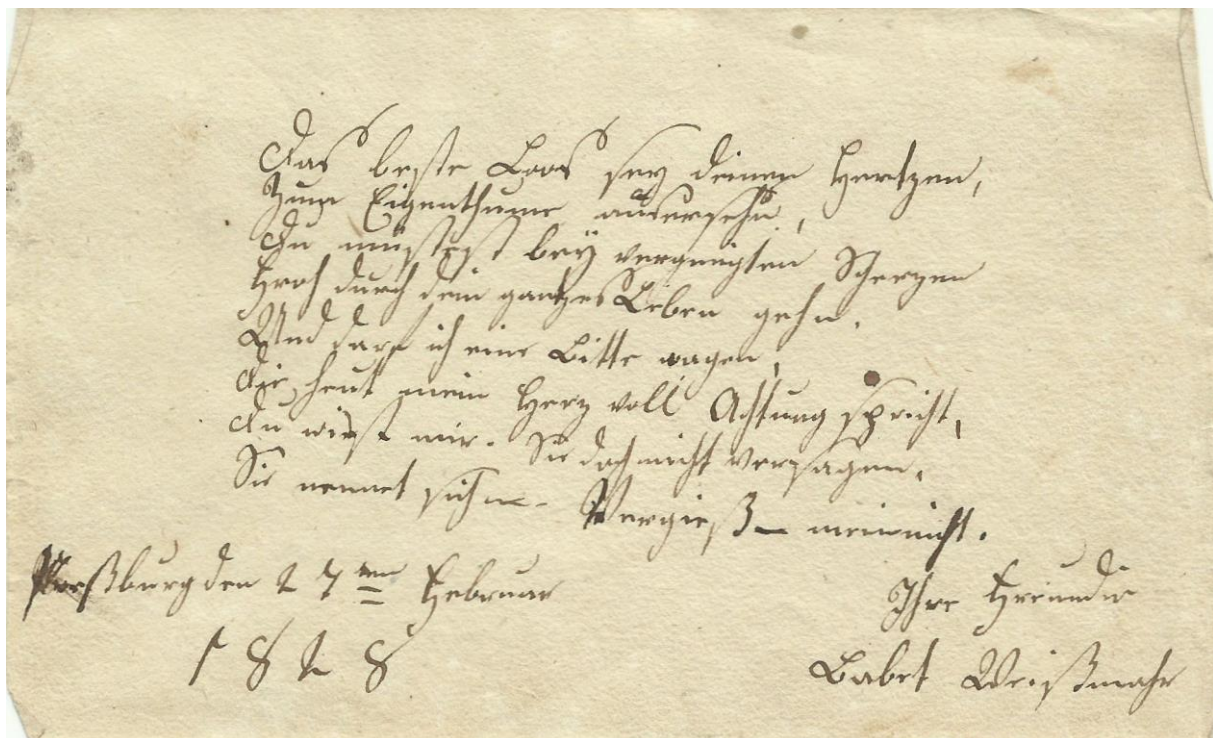 Das beste Loos sey deinen Hertzen,
Zum Eigenthume ausersehn,
Du müssest bey vergnügten Scherzen
Froh durch dein gantzes Leben gehn.
Und darf ich eine Bitte wagen,
Die heut mein Herz voll Achtung spricht,
Du wirst mir. Sie doch nicht versagen.
Sie nennet sich – Vergieß – meinnicht.
Preßburg den 27ten Februar
1828
Ihre Freundin
Babet Weißmahr